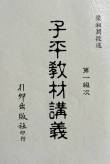 梁湘潤教述
子平教材講義
第一級次
行卯出版社
印行